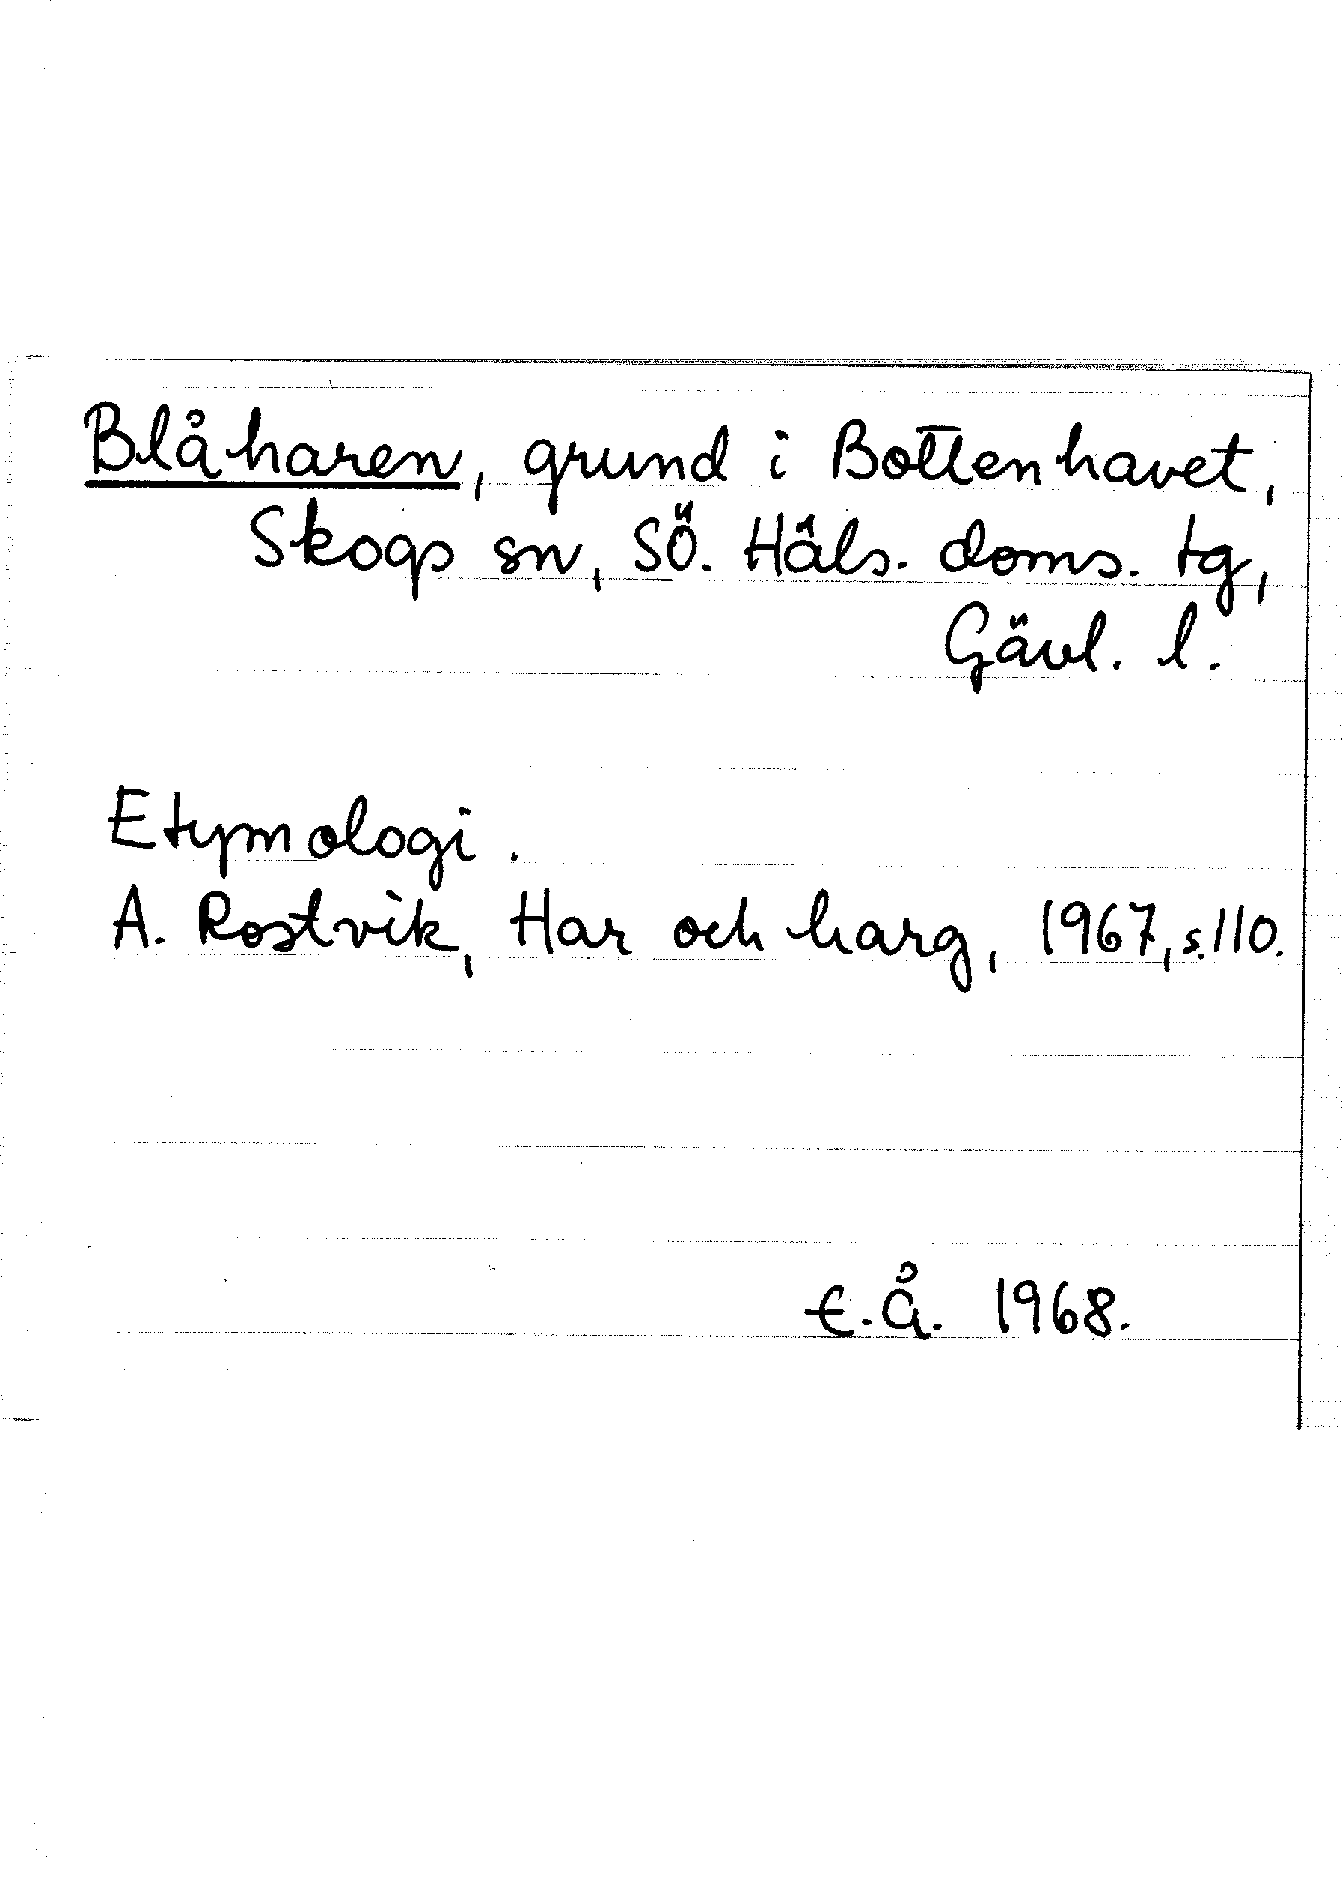 Blåharen, grund i Bottenhavet,
Skogs sn, SÖ. Häls. doms. tg,
Gävl. l.
Etymologi.
A. Rostvik, Har och harg, 1967, s. 110.
E.Å. 1968.